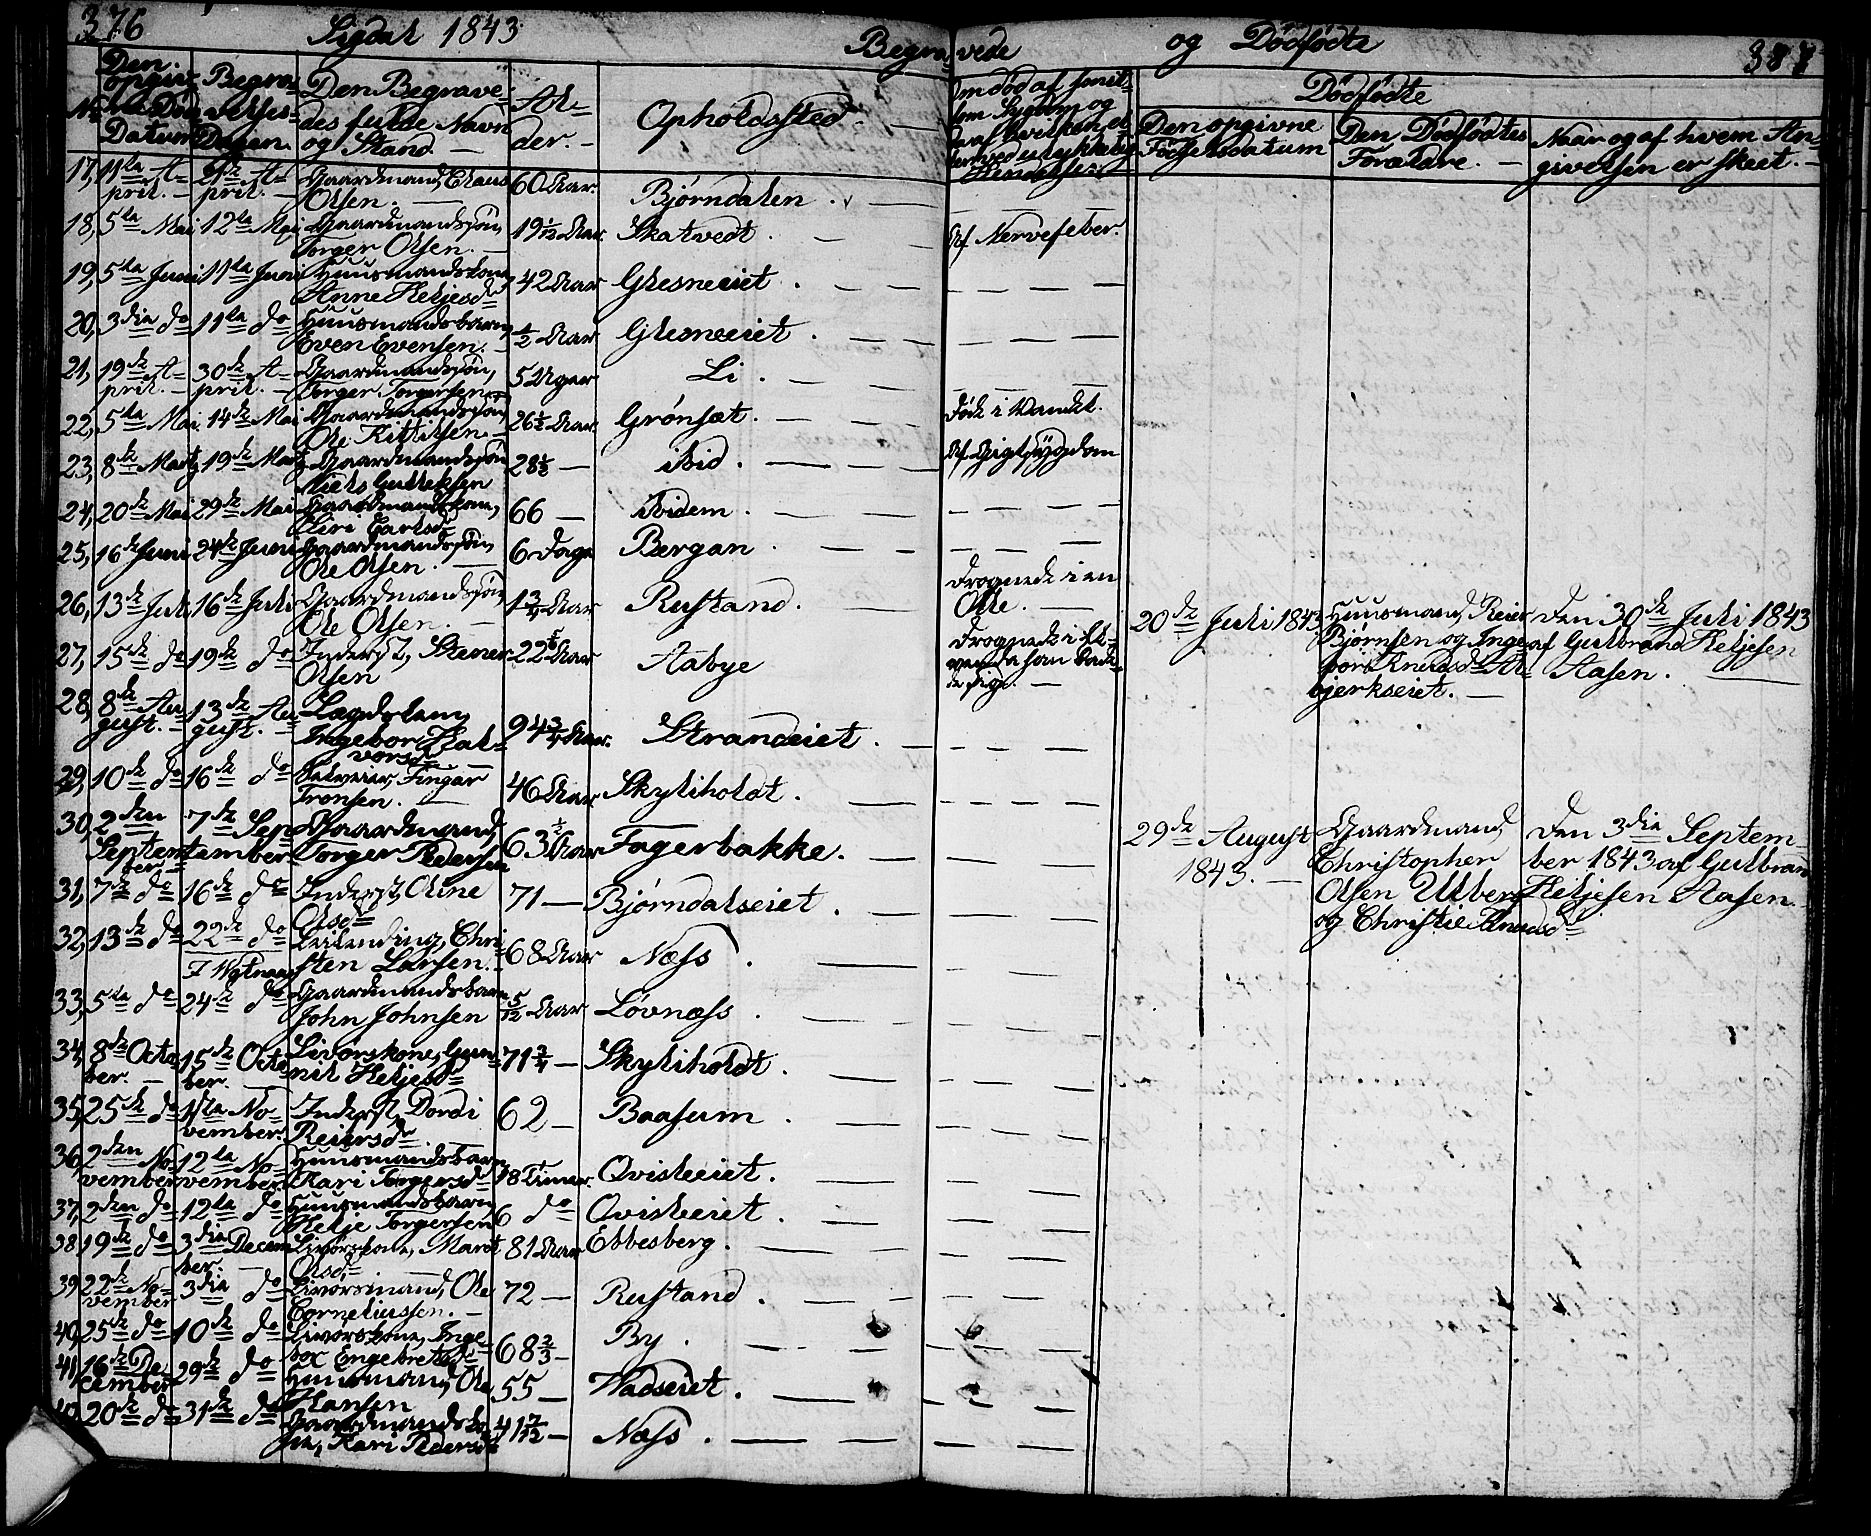 376 Sigdal 1843. Begravede og Dødfødte
Den opgivne Døds Datum
Begravelses-Dagen.
Den Begravedes fulde Navn og Stand
Alder.
Opholdssted
Dødfødte
Den opgivne Fødselsdatum
Den Dødfødtes Forældre.
Naar og af hvem Angivelsen er skeet.
17, 11te April. April. Gaardmand, Olsen. 60 Aar. Bjørndalen.
18, 5te Mai 12te Mai Gaardmandssøn, Torger Olsen. 19 1/12 Aar. Skatvedt. Af Nervefeber.
19, 5te Juni 11te Juni Huusmandskone, Anne Heljesd. 42 Aar Glesneeiet.
20, 3die do 11te do Huusmandsbarn, Even Evensen. 1/2 Aar Glesneeiet.
21, 19de April. 30de April. Gaardmandssøn, Torger Torgersen 5 Uger Li.
22, 5te Mai 14de Mai Gaardmandssøn, Ole Kittilsen. 26 1/2 Aar. Grønsæt. Død i Vandet.
23, 8de Marts 19de Marts Gaardmandssøn Niels Gulliksen 28 1/2 ibid. Af Gigtsygdom
24, 20de Mai 29de Mai Gaardmandskone, Siri Carlsd 66 ibidem.
25, 16de Juni 24de Juni Gaardmandssøn, Ole Olsen. 6 Dage Bergan.
26, 13de Juli 16de Juli Gaardmandssøn, Ole Olsen. 1 3/4 Aar Rustand. Drognede i en
27, 15de do 19de do Inderst, Stener Olsen 22 Aar Aabye Drognede i da han badede sig.
20de Juli 1843 Huusmand, Reier Bjørnsen og Ingebor Knudsd Den 30de Juli 1843 af Gulbrand Heljesen Aasen.
28, 8de August. 13de August. Lægdslem, Ingebor Halvorsd 94 3/4 Aar. Strandeiet.
29, 10de do 16de do Fingar Tronsen. 46 Aar Skyliholdt.
30, 2den September 7de September Gaardmand, Torger Pedersen 63 1/2 Aar Fagerbakke.
29de August 1843. Gaardmand, Christopher Olsen Ulberg og Christie Knudsd Den 3die September 1843 af Gulbrand Heljesen Aasen.
31, 7de do 16de do Inderst, Oline Olsd 71 Bjørndalseiet.
32, 13de do 22de do Leilending, Christen Larsen. 68 Aar Næss.
33, 5te do 24de do Gaardmandsbarn John Johnsen 5/12 Aar Løvnæss.
34, 8de October. 15de October. Livørskone, Gunnil Heljesd 71 3/4 Skyliholdt.
35, 25de do 1ste November. Inderst, Dordi Reiersd 62 Baasum.
36, 2den November 12te November Huusmandsbarn Kari Torgersd 18 Timer. Qvisleeiet.
37, 2den do 12te do Huusmandsbarn, Helje Torgersen 6 do Qvisleeiet.
38, 19de do 3die December. Livørskone, Marit Olsd. 81 Aar Ebbesberg.
39, 22de November 3die do Livørsmand, Ole Corneliussen. 72 Rustand.
40, 25de do 10de do Livørskone, Ingebor Engebretsd 68 2/3 By.
41, 16de December 29de do Huusmand, Ole Hansen 55 Vadseiet.
20de do 31de do Kari Pedersd 41 7/12 Næss.